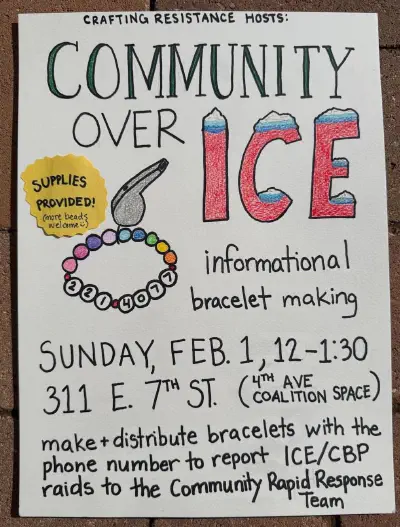 CRAFTING RESISTANCE HOSTS:
COMMUNITY
OVER ICE
SUPPLIES
PROVIDED!
(more beads
welcome☺)
221 4077
informational
bracelet making
SUNDAY, FEB. 1, 12-1:30
311 E. 7TH ST. (4TH AVE COALITION SPACE)
make + distribute bracelets with the
phone number to report ICE/CBP
raids to the Community Rapid Response
Team